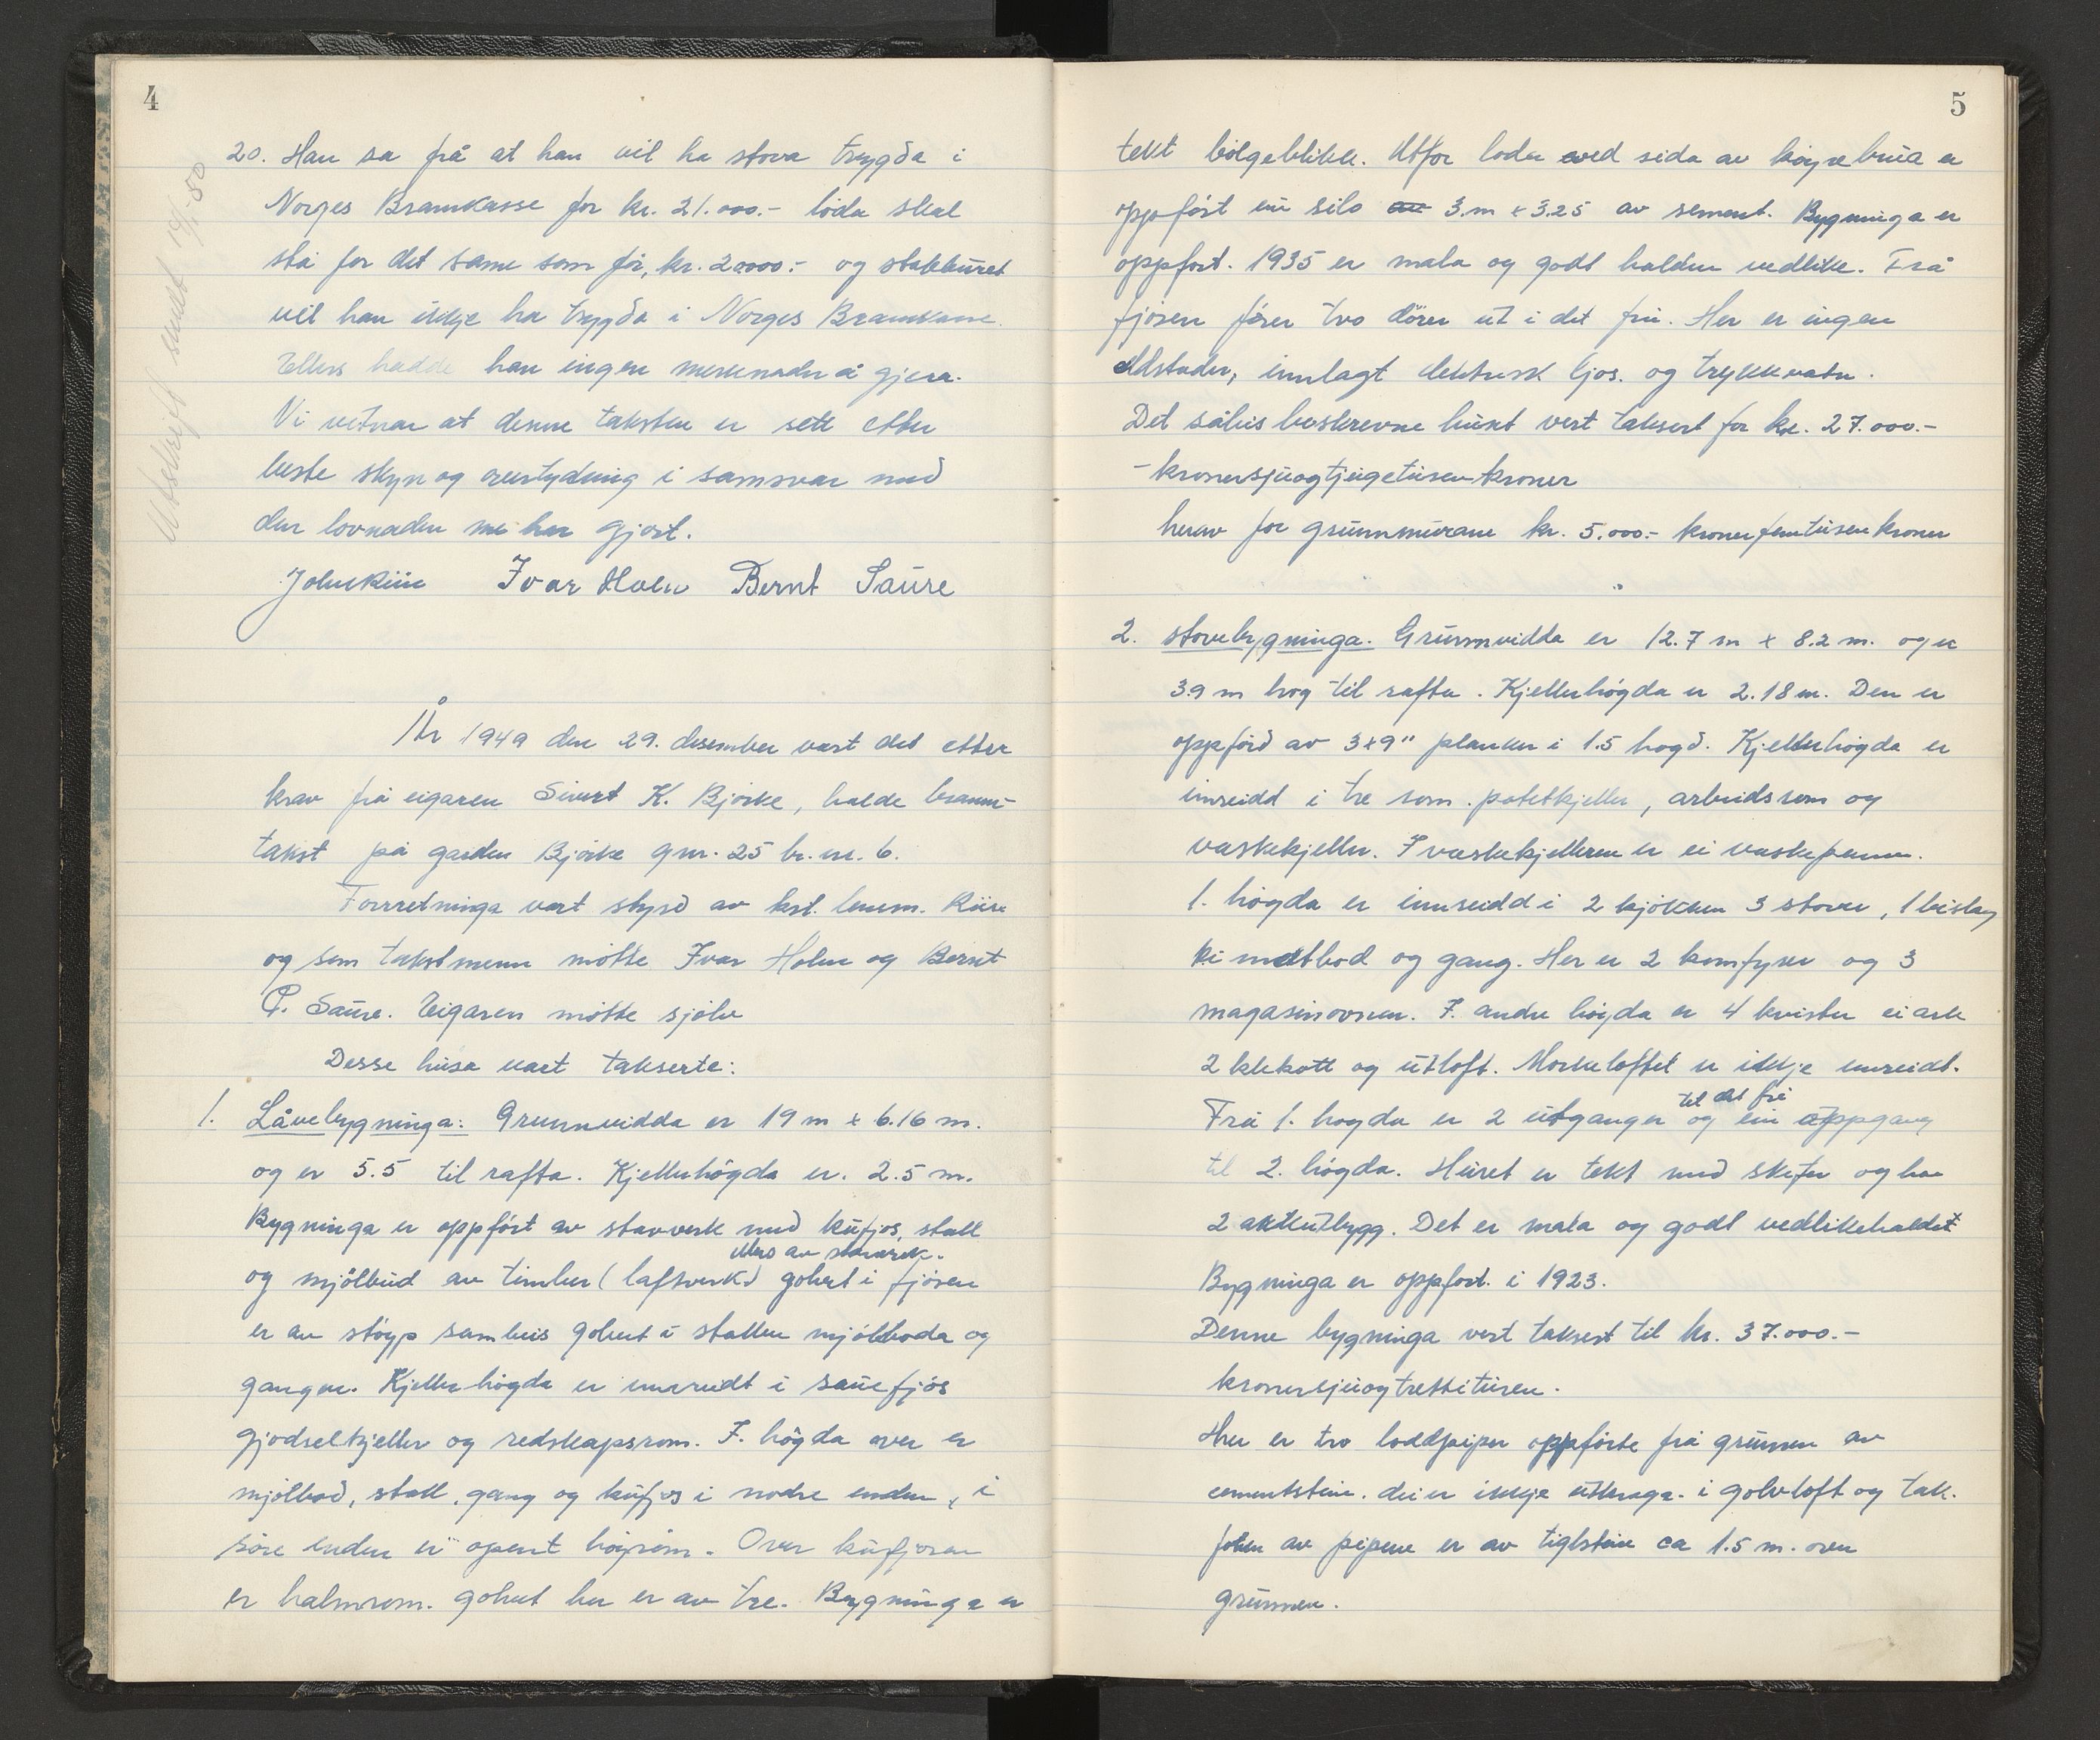 4
Utskrift sendt 10/1-50
20. Han sa frå at han vil ha stova trygda i
Norges Brannkasse for kr. 21.000.- löda skal
stå for det same som för, kr. 20000.- og stabburet
vil han ikkje ha trygda i Norges Brannkasse.
Ellers hadde han ingen merknader å gjera.
Vi vitnar at denne taksten er sett etter
beste skyn og overtyding i samsvar med
den lovnaden me har gjort.
John Riise Ivar Holen Bernt Saure
År 1949 den 29. desember vart det etter
krav frå eigaren Sivert K. Bjørke, halde brann-
takst på garden Bjørke gnr. 25 br. nr. 6.
Forretninga vart styrd av kst. lensm. Riise
og som takstmenn møtte Ivar Holen og Bernt
P. Saure. Eigaren møtte sjölv
Desse husa vart takserte:
1. Låvebygninga: Grunnvidda er 19 m x 6.16 m.
og er 5.5 til rafta. Kjellerhögda er. 2.5 m.
Bygninga er oppfört av stavverk med kufjos, stall
ellers av stavverk.
og mjölbud av timber (laftverk) golvet i fjösen
er av støyp samleis golvet i stallen mjölboda og
gangen. Kjellerhögda er innreidt i sauefjös
gjødselkjeller og redskapsrom. I. högda over er
mjölbod, stall, gang og kufjos i nodre enden, i
söre enden er opent höyrom. Over kufjosen
er halmrom. golvet her er av tre. Bygninga er
5
tekt bölgeblikk. Utfor loda ved sida av höyebrua er
oppfört ein silo 3 m x 3.25 av sement. Bygninga er
oppfort. 1935 er mala og godt halden vedlike. Frå
fjösen förer tvo dörer ut i det fri. Her er ingen
eldstader, innlagt elektrisk ljos. og trykkvatn.
Det såleis beskrevne hust vert taksert for kr. 27.000.-
- kronersjuogtjugetusen kroner
herav for grunnmurane kr. 5.000.- kronerfemtusen kroner
2. stovebygninga. Grunnvidda er 12.7 m x 8.2 m. og er
3.9 m hog til rafta. Kjellerhögda er 2.18 m. Den er
oppförd av 3x9" planker i 1.5 hogd. Kjellerhögda er
innreidd i tre som potetkjeller, arbeidsrom og
vaskekjeller. I vaskekjelleren er ei vaskepanne.
1. högda er innreidd i 2 kjökken 3 stover, 1 bislag
ei matbod og gang. Her er 2 komfyrer og 3
magasinovnen. I. andre högda er 4 kvister ei ark
2 klekott og utloft. Morkeloftet er ikkje innreidt.
til det fri
Frå 1. hogda er 2 utganger og ein oppgang
til 2. högda. Huset er tekt med skifer og har
2 utbygg. Det er mala og godt vedlikehaldet
Bygninga er oppfort. i 1923.
Denne bygninga vert taksert til kr. 37.000.-
kronersjuogtrettitusen.
Her er tvo loddpiper oppförte frå grunnen av
cementstein. dei er ikkje utkraga. i golv loft og tak.
foten av pipene er av tiglstein ca 1.5 m. over
grunnen.